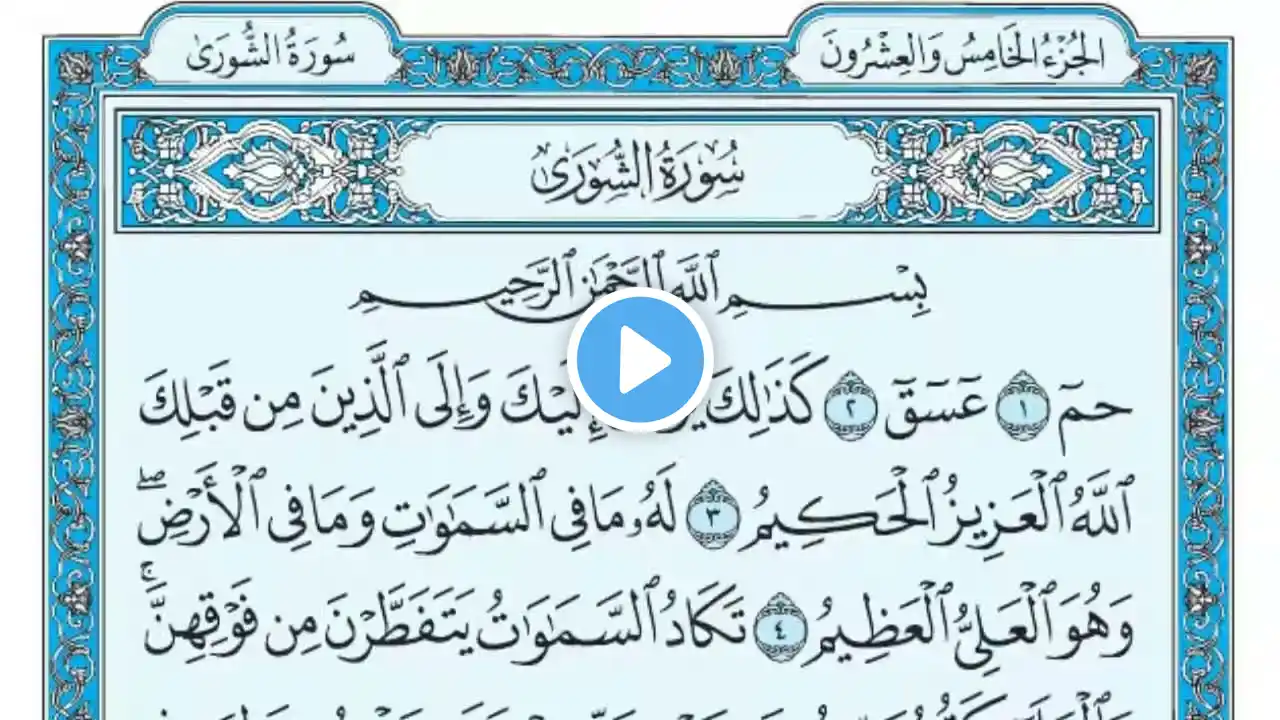 الجُزْءُ الخَامِسُ وَالعِشْرُونَ
سُورَةُ الشُّورَىٰ
سُورَةُ الشُّورَىٰ
بِسْمِ ٱللَّهِ ٱلرَّحْمَٰنِ ٱلرَّحِيمِ
حمٓ ١ عٓسٓقٓ ٢ كَذَٰلِكَ إِلَيْكَ وَإِلَى ٱلَّذِينَ مِن قَبْلِكَ
ٱللَّهُ ٱلْعَزِيزُ ٱلْحَكِيمُ ٣ لَهُۥ مَا فِي ٱلسَّمَٰوَٰتِ وَمَا فِي ٱلْأَرْضِۖ
وَهُوَ ٱلْعَلِيُّ ٱلْعَظِيمُ ٤ تَكَادُ ٱلسَّمَٰوَٰتُ يَتَفَطَّرْنَ مِن فَوْقِهِنَّۚ